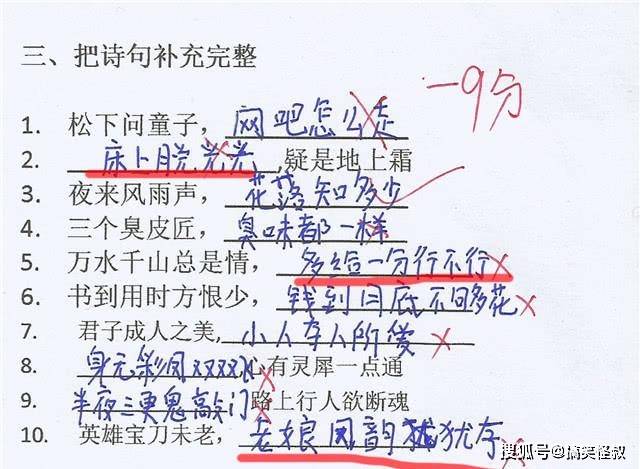 三、把诗句补充完整
-9分
1. 松下问童子，网吧怎么走
2. 床上脱光光，疑是地上霜
3. 夜来风雨声，花落知多少
4. 三个臭皮匠，臭味都一样
5. 万水千山总是情，多给一分行不行
6. 书到用时方恨少，钱到月底不够花
7. 君子成人之美，小人夺人所爱
8. 身无彩凤XXXX飞 心有灵犀一点通
9. 半夜三更鬼敲门 路上行人欲断魂
10. 英雄宝刀未老，老娘风韵犹存
搜狐号@搞笑怪叔